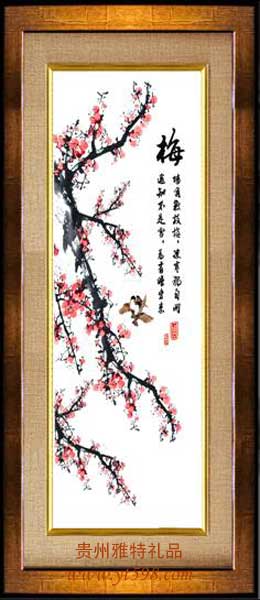 梅
墙角数枝梅，凌寒独自開
遥知不是雪，為有暗香来
贵州雅特礼品
www.yt598.com